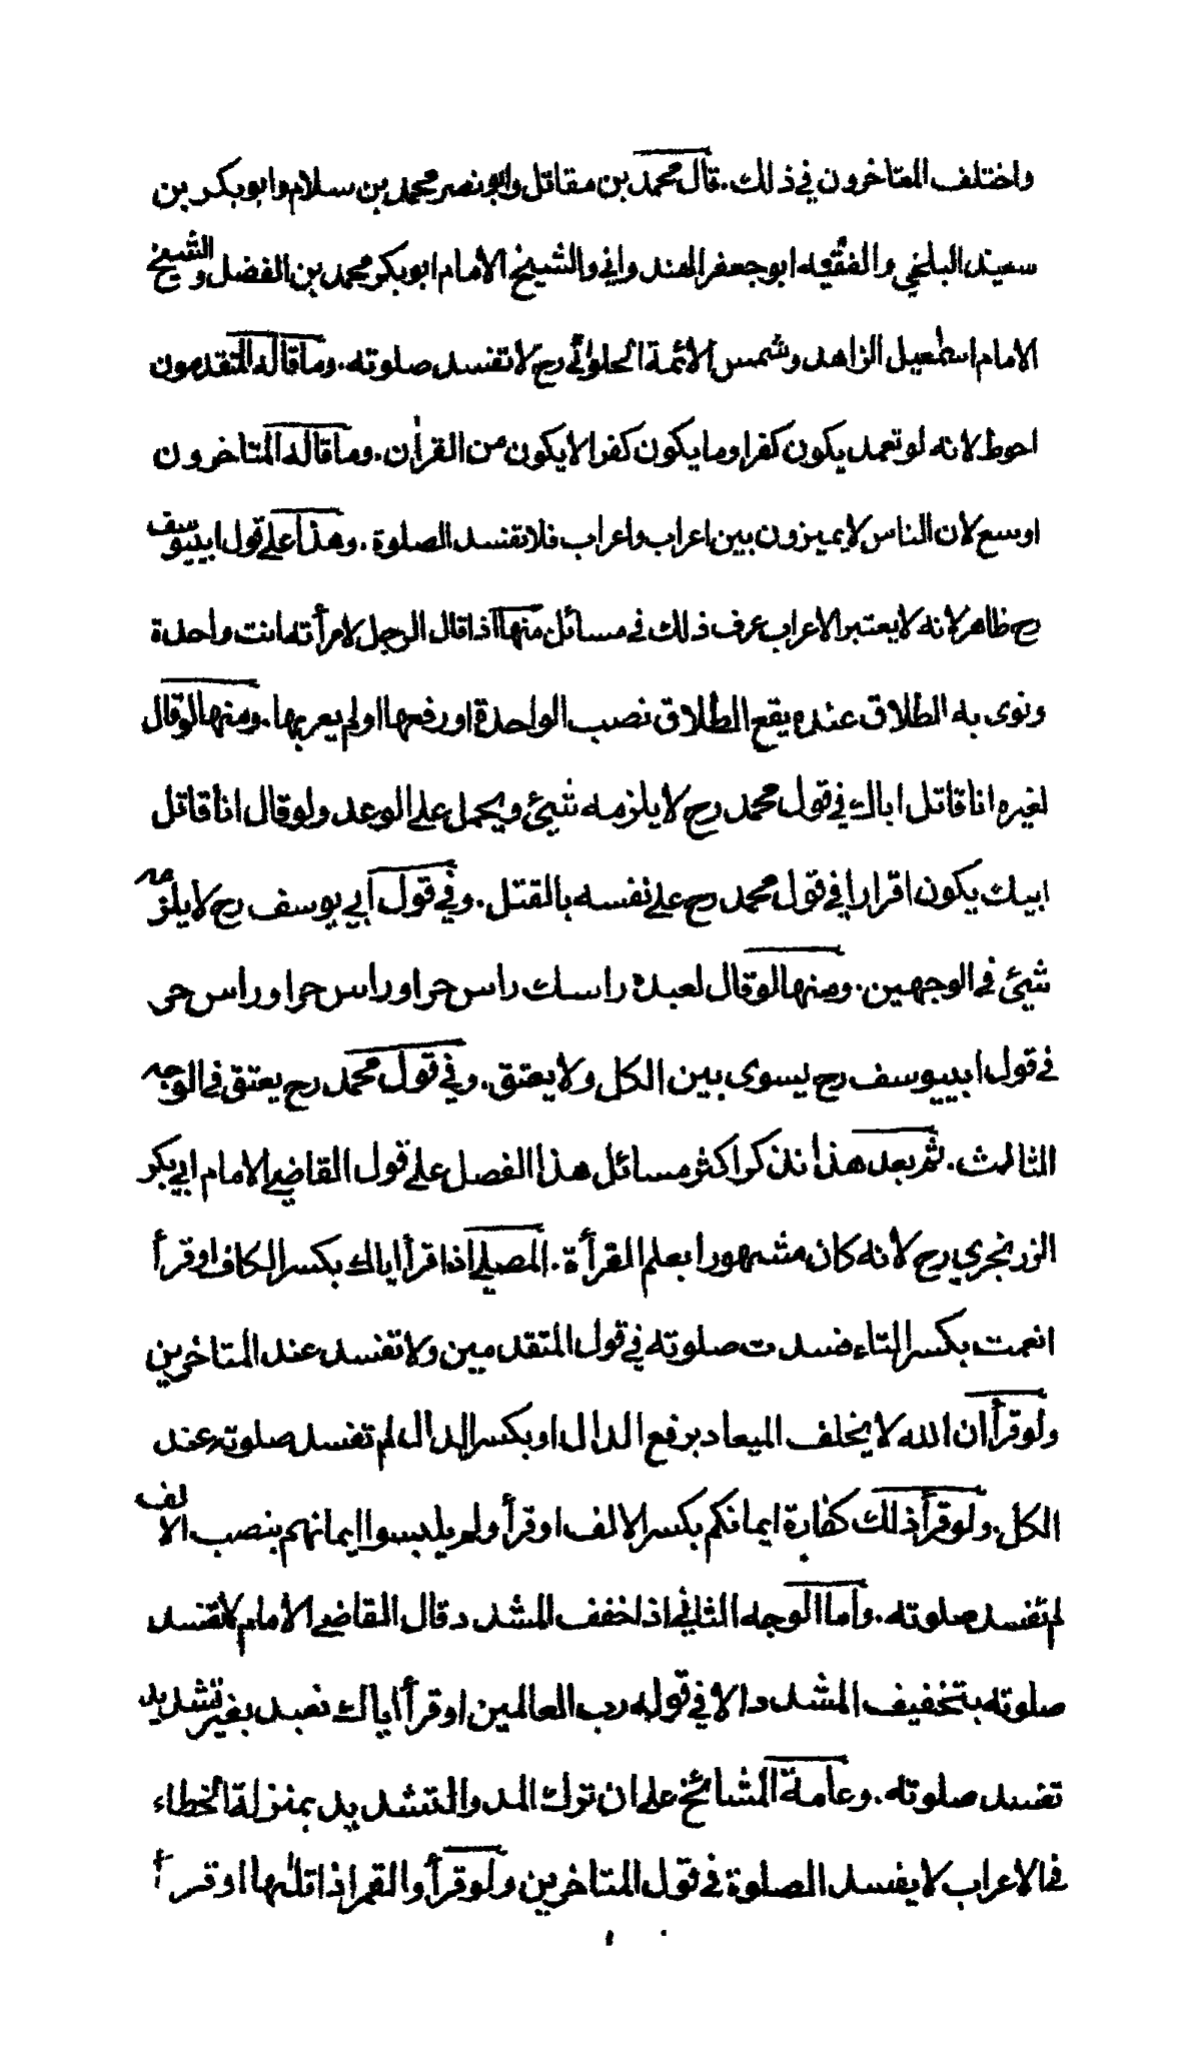 واختلف المتاخرون في ذلك. قال محمد بن مقاتل وابو نصر محمد بن سلام وابو بكر بن
سعيد البلخي والفقيه ابو جعفر الهندواني والشيخ الامام ابو بكر محمد بن الفضل والشيخ
الامام اسمعيل الزاهد وشمس الائمة الحلوائي رح لا تفسد صلوته. وما قاله المتقدمون
احوط لانه لو تعمد يكون كفرا وما يكون كفرا لا يكون من القرأن. وما قاله المتاخرون
اوسع لان الناس لا يميزون بين اعراب واعراب فلا تفسد الصلوة. وهذا على قول ابييوسف
رح ظاهر لانه لا يعتبر الاعراب عرف ذلك في مسائل منها اذا قال الرجل لامرأته انت واحدة
ونوى به الطلاق عنده يقع الطلاق نصب الواحدة او رفعها او لم يعربها. ومنها لو قال
لغيره انا قاتل اباك في قول محمد رح لا يلزمه شيئ ويحمل على الوعد ولو قال انا قاتل
ابيك يكون اقرارا في قول محمد رح على نفسه بالقتل. وفي قول ابي يوسف رح لا يلزمه
شيئ في الوجهين. ومنها لو قال لعبده راسك راس حر او راس حرا وراس حر
في قول ابييوسف رح يسوى بين الكل ولا يعتق. وفي قول محمد رح يعتق في الوجه
الثالث. ثم بعد هذا نذكر اكثر مسائل هذا الفصل على قول القاضي الامام ابي بكر
الزرنجري رح لانه كان مشهورا بعلم القرأة. المصلي اذا قرأ اياك بكسر الكاف او قرأ
انعمت بكسر التاء فسدت صلوته في قول المتقدمين ولا تفسد عند المتاخرين
ولو قرأ ان الله لا يخلف الميعاد برفع الدال او بكسر الدال لم تفسد صلوته عند
الكل. ولو قرأ ذلك كفارة ايمانكم بكسر الالف او قرأ ولم يلبسوا ايمانهم بنصب الالف
لم تفسد صلوته. واما الوجه الثاني اذا خفف المشدد قال القاضي الامام لا تفسد
صلوته بتخفيف المشدد الا في قوله رب العالمين او قرأ اياك نعبد بغير تشديد
تفسد صلوته. وعامة المشائخ على ان ترك المد والتشديد بمنزلة الخطاء
في الاعراب لا يفسد الصلوة في قول المتاخرين ولو قرأ والقمر اذا تلٰها او قرأ